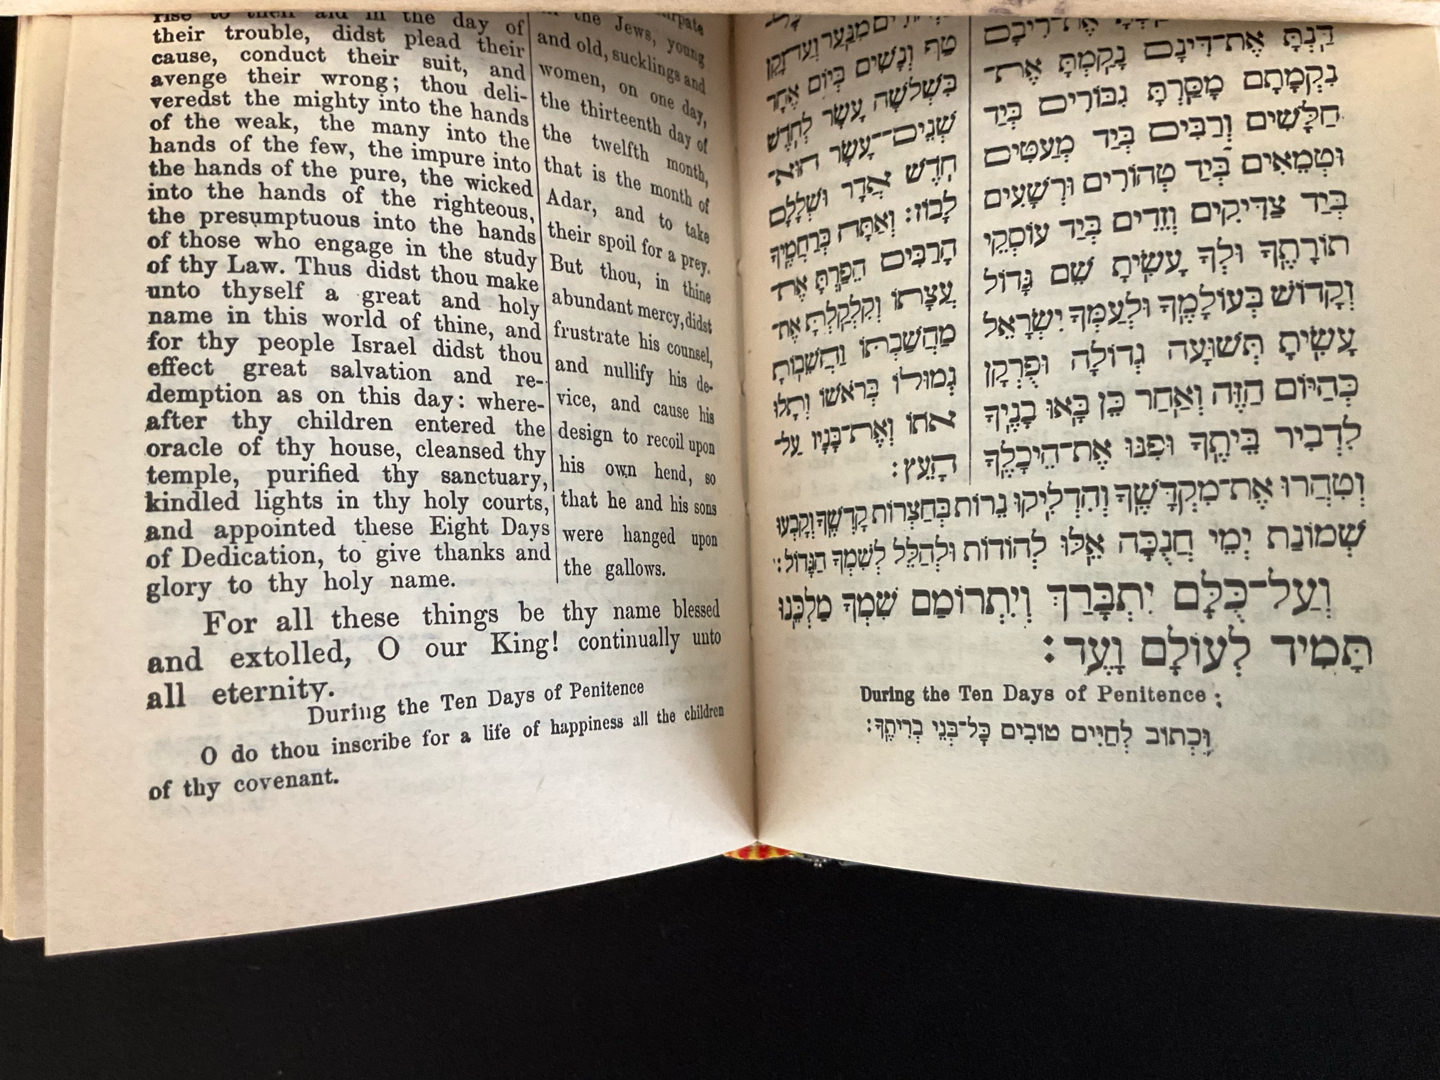 rise to their aid in the day of
their trouble, didst plead their
cause, conduct their suit, and
avenge their wrong; thou deli-
veredst the mighty into the hands
of the weak, the many into the
hands of the few, the impure into
the hands of the pure, the wicked
into the hands of the righteous,
the presumptuous into the hands
of those who engage in the study
of thy Law. Thus didst thou make
unto thyself a great and holy
name in this world of thine, and
for thy people Israel didst thou
effect great salvation and re-
demption as on this day: where-
after thy children entered the
oracle of thy house, cleansed thy
temple, purified thy sanctuary,
kindled lights in thy holy courts,
and appointed these Eight Days
of Dedication, to give thanks and
glory to thy holy name.
the Jews, young
and old, sucklings and
women, on one day,
the thirteenth day of
the twelfth month,
that is the month of
Adar, and to take
their spoil for a prey.
But thou, in thine
abundant mercy, didst
frustrate his counsel,
and nullify his de-
vice, and cause his
design to recoil upon
his own hend, so
that he and his sons
were hanged upon
the gallows.
For all these things be thy name blessed
and extolled, O our King! continually unto
all eternity.
During the Ten Days of Penitence
O do thou inscribe for a life of happiness all the children
of thy covenant.
אֶת־רִיבָם
דַּנְתָּ אֶת־דִּינָם נָקַמְתָּ אֶת־
נִקְמָתָם מָסַרְתָּ גִבּוֹרִים בְּיַד
חַלָּשִׁים וְרַבִּים בְּיַד מְעַטִּים
וּטְמֵאִים בְּיַד טְהוֹרִים וּרְשָׁעִים
בְּיַד צַדִּיקִים וְזֵדִים בְּיַד עוֹסְקֵי
תוֹרָתֶךָ וּלְךָ עָשִׂיתָ שֵׁם גָּדוֹל
וְקָדוֹשׁ בְּעוֹלָמֶךָ וּלְעַמְּךָ יִשְׂרָאֵל
עָשִׂיתָ תְּשׁוּעָה גְדוֹלָה וּפֻרְקָן
כְּהַיּוֹם הַזֶּה וְאַחַר כֵּן בָּאוּ בָנֶיךָ
לִדְבִיר בֵּיתֶךָ וּפִנּוּ אֶת־הֵיכָלֶךָ
מִנַּעַר וְעַד־זָקֵן
טַף וְנָשִׁים בְּיוֹם אֶחָד
בִּשְׁלֹשָׁה עָשָׂר לְחֹדֶשׁ
שְׁנֵים־עָשָׂר הוּא־
חֹדֶשׁ אֲדָר וּשְׁלָלָם
לָבוֹז: וְאַתָּה בְּרַחֲמֶיךָ
הָרַבִּים הֵפַרְתָּ אֶת־
עֲצָתוֹ וְקִלְקַלְתָּ אֶת־
מַחֲשַׁבְתּוֹ וַהֲשֵׁבוֹתָ
גְמוּלוֹ בְּרֹאשׁוֹ וְתָלוּ
אֹתוֹ וְאֶת־בָּנָיו עַל־
הָעֵץ:
וְטִהֲרוּ אֶת־מִקְדָּשֶׁךָ וְהִדְלִיקוּ נֵרוֹת בְּחַצְרוֹת קָדְשֶׁךָ וְקָבְעוּ
שְׁמוֹנַת יְמֵי חֲנֻכָּה אֵלּוּ לְהוֹדוֹת וּלְהַלֵּל לְשִׁמְךָ הַגָּדוֹל:
וְעַל־כֻּלָּם יִתְבָּרַךְ וְיִתְרוֹמַם שִׁמְךָ מַלְכֵּנוּ
תָּמִיד לְעוֹלָם וָעֶד:
During the Ten Days of Penitence:
וּכְתוֹב לְחַיִּים טוֹבִים כָּל־בְּנֵי בְרִיתֶךָ: